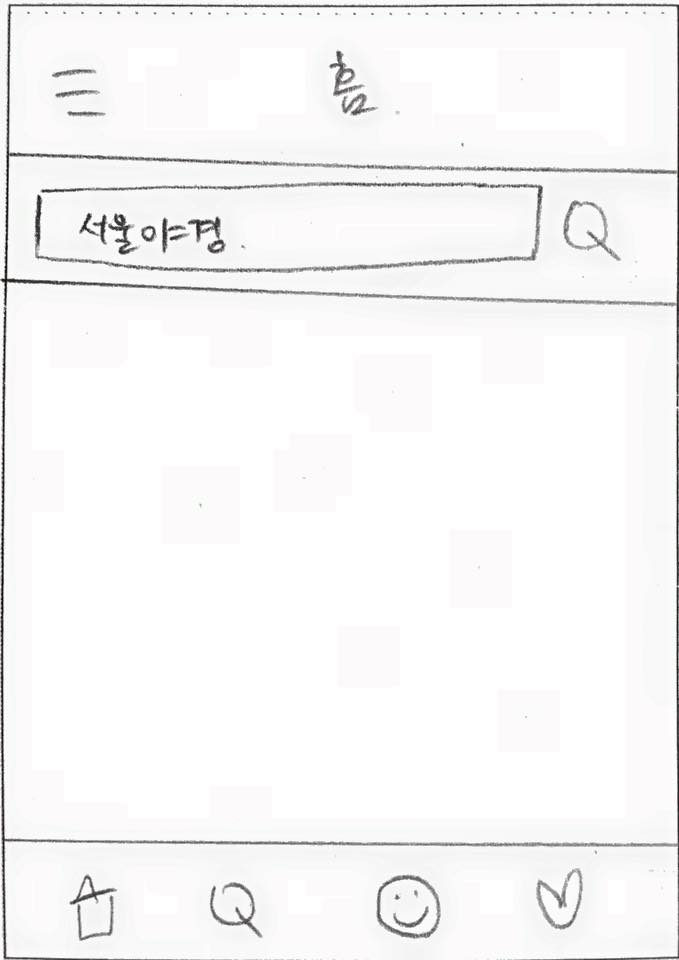 홈
서울야경